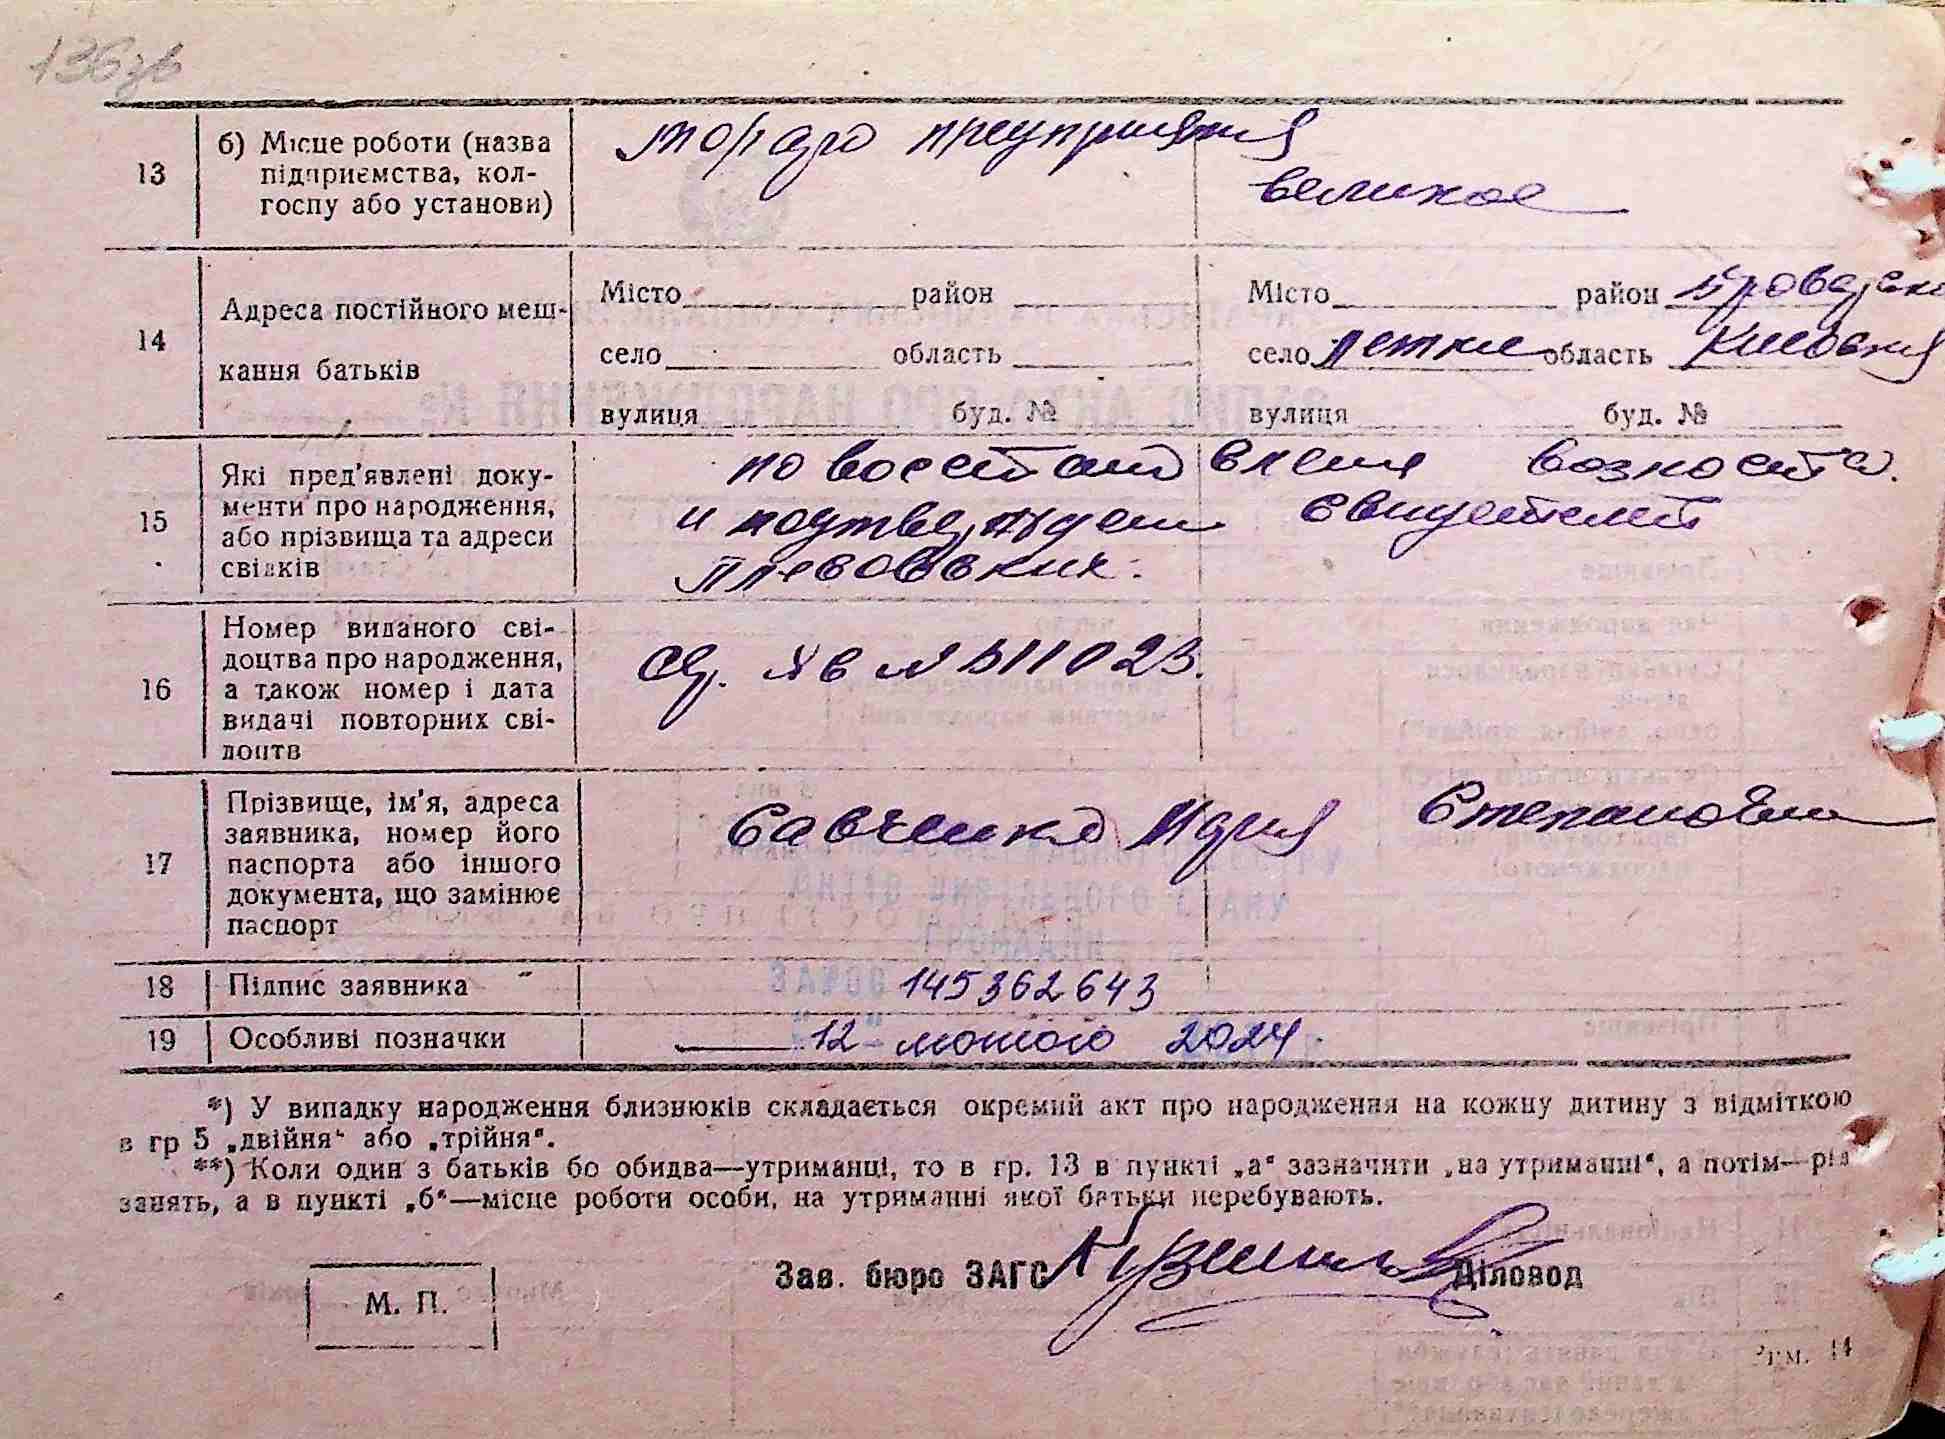 136зв
13 б) Місце роботи (назва підприємства, колгоспу або установи)
14 Адреса постійного мешкання батьків
Місто район
село область
вулиця буд. №
Місто район
село Летки область Киевская
вулиця буд. №
15 Які пред'явлені документи про народження, або прізвища та адреси свідків
по восстановления возраста.
и подтвержден свидетелей
16 Номер виданого свідоцтва про народження, а також номер і дата видачі повторних свідоцтв
17 Прізвище, ім'я, адреса заявника, номер його паспорта або іншого документа, що замінює паспорт
Савченко Мария Степановна
18 Підпис заявника
145362643
19 Особливі позначки
12 лютого 2024.
*) У випадку народження близнюків складається окремий акт про народження на кожну дитину з відміткою
в гр 5 „двійня“ або „трійня“.
**) Коли один з батьків бо обидва—утриманці, то в гр. 13 в пункті „а“ зазначити „на утриманні“, а потім—рід
занять, а в пункті „б“—місце роботи особи, на утриманні якої батьки перебувають.
М. П.
Зав. бюро ЗАГС
Діловод